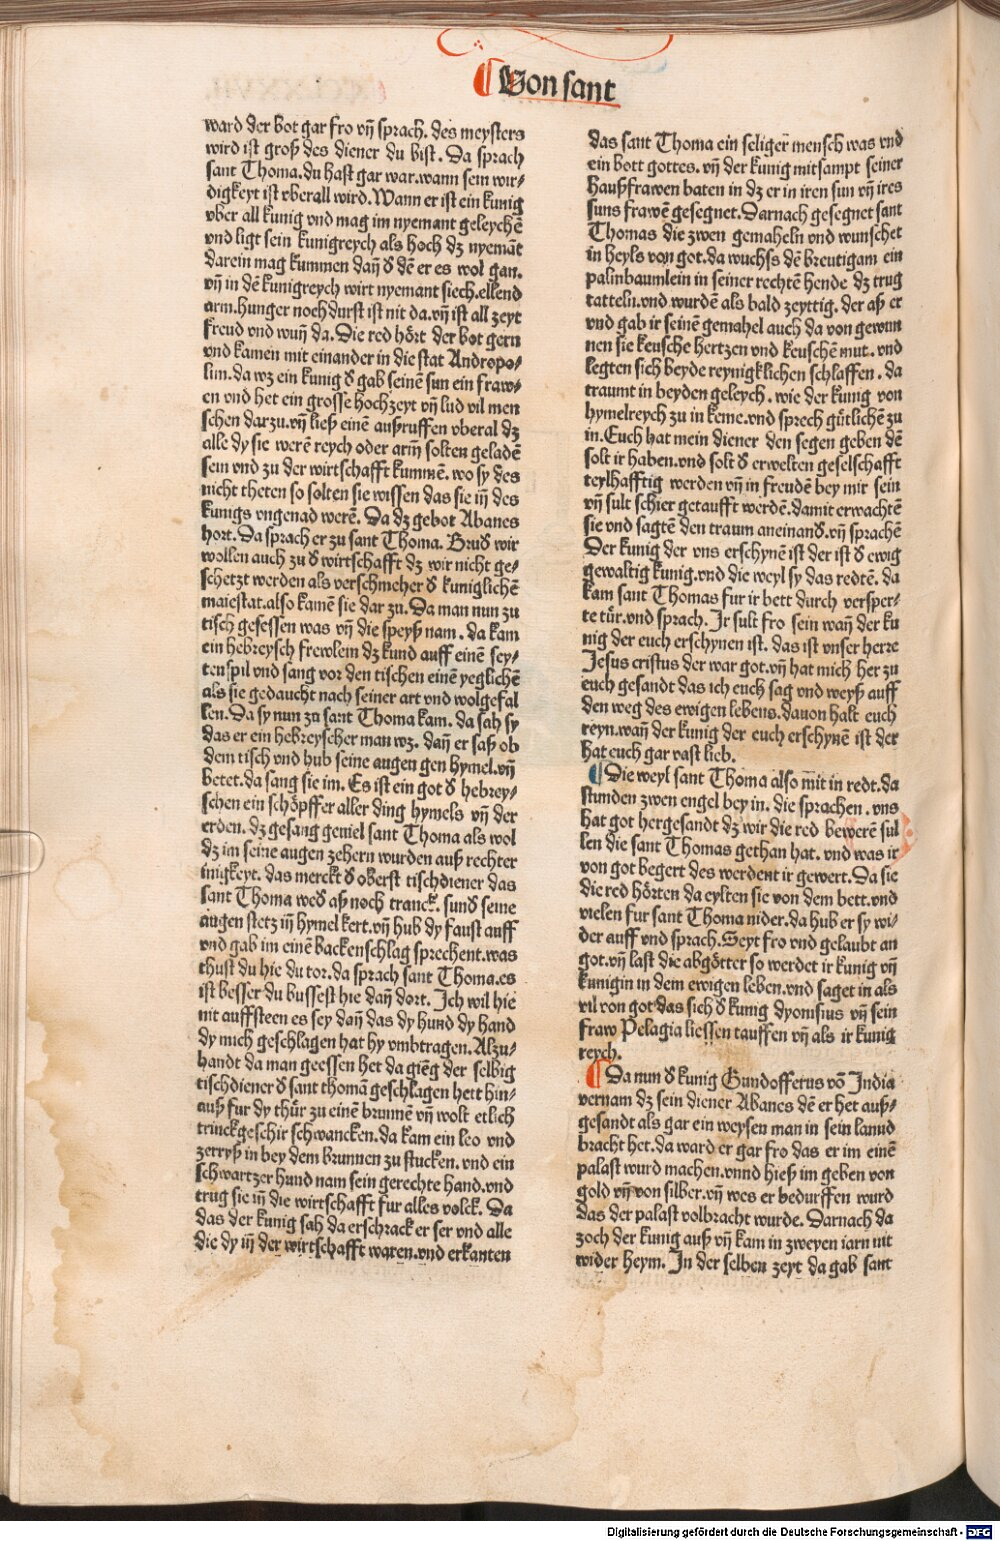 ¶ Von sant
ward der bot gar fro vn̄ sprach. des meysters
wird ist groß des diener du bist. Da sprach
sant Thoma. du hast gar war. wann sein wir⸗
digkeyt ist vberall wird. Wann er ist ein kunig
vber all kunig vnd mag im nyemant geleychē
vnd ligt sein kunigreych als hoch dz nyemāt
darein mag kummen dañ ð dē er es wol gan.
vn̄ in dē kunigreych wirt nyemant siech. ellend
arm. hunger noch durst ist nit da. vn̄ ist all zeyt
freud vnd wuñ da. Die red hört der bot gern
vnd kamen mit einander in die stat Andropo⸗
lim. da wz ein kunig ð gab seinē sun ein fraw⸗
en vnd het ein grosse hochzeyt vn̄ lud vil men
schen darzu. vn̄ ließ einē außruffen vberal dz
alle dy sie werē reych oder arm̄ solten geladē
sein vnd zu der wirtschafft kummē. wo sy des
nicht theten so solten sie wissen das sie in̄ des
kunigs vngenad werē. Da dz gebot Abanes
hort. Da sprach er zu sant Thoma. Bruð wir
wollen auch zu ð wirtschafft dz wir nicht ge⸗
schetzt werden als verschmeher ð kuniglichē
maiestat. also kamē sie dar zu. Da man nun zu
tisch gesessen was vn̄ die speyß nam. da kam
ein hebreysch frewlein dz kund auff einē sey⸗
tenspil vnd sang vor den tischen einē yeglichē
als sie gedaucht nach seiner art vnd wolgefal
len. Da sy nun zu sant Thoma kam. da sah sy
das er ein hebreyscher man wz. dañ er saß ob
dem tisch vnd hub seine augen gen hymel. vn̄
betet. da sang sie im. Es ist ein got ð hebrey⸗
schen ein schöpffer aller ding hymels vn̄ der
erden. dz gesang geuiel sant Thoma als wol
dz im seine augen zehern wurden auß rechter
inigkeyt. das merckt ð oberst tischdiener das
sant Thoma weð aß noch tranck. sunð seine
augen stetz in̄ hymel kert. vn̄ hub dy faust auff
vnd gab im einē backenschlag sprechent. was
thust du hie du tor. da sprach sant Thoma. es
ist besser du bussest hie dañ dort. Ich wil hie
nit auffsteen es sey dañ das dy hund dy hand
dy mich geschlagen hat hy vmbtragen. Alzu⸗
handt da man geessen het da giēg der selbig
tischdiener ð sant thomā geschlagen hett hin⸗
auß fur dy thür zu einē brunnē vn̄ wolt etlich
trinckgeschir schwancken. da kam ein leo vnd
zerryß in bey dem brunnen zu stucken. vnd ein
schwartzer hund nam sein gerechte hand. vnd
trug sie in̄ die wirtschafft fur alles volck. Da
das der kunig sah da erschrack er ser vnd alle
die dy in̄ der wirtschafft waren. vnd erkanten
das sant Thoma ein seliger mensch was vnd
ein bott gottes. vn̄ der kunig mitsampt seiner
haußfrawen baten in dz er in iren sun vn̄ ires
suns frawē gesegnet. Darnach gesegnet sant
Thomas die zwen gemaheln vnd wunschet
in heyls von got. da wuchss dē breutigam ein
palmbaumlein in seiner rechtē hende dz trug
tatteln. vnd wurdē als bald zeyttig. der aß er
vnd gab ir seinē gemahel auch da von gewun
nen sie keusche hertzen vnd keuschē mut. vnd
legten sich beyde reynigklichen schlaffen. da
traumt in beyden geleych. wie der kunig von
hymelreych zu in keme. vnd sprech gütlichē zu
in. Euch hat mein diener den segen geben dē
solt ir haben. vnd solt ð erwelten geselschafft
teylhafftig werden vn̄ in freudē bey mir sein
vn̄ sult schier getaufft werdē. damit erwachtē
sie vnd sagtē den traum aneinanð. vn̄ sprachē
Der kunig der vns erschynē ist der ist ð ewig
gewaltig kunig. vnd die weyl sy das redtē. da
kam sant Thomas fur ir bett durch versper⸗
te tür. vnd sprach. Ir sult fro sein wañ der ku
nig der euch erschynen ist. das ist vnser herre
Jesus cristus der war got. vn̄ hat mich her zu
euch gesandt das ich euch sag vnd weyß auff
den weg des ewigen lebens. dauon halt euch
reyn. wañ der kunig der euch erschynē ist der
hat euch gar vast lieb.
¶ Die weyl sant Thoma also mit in redt. da
stunden zwen engel bey in. die sprachen. vns
hat got hergesandt dz wir die red bewerē sul
len die sant Thomas gethan hat. vnd was ir
von got begert des werdent ir gewert. Da sie
die red hörten da eylten sie von dem bett. vnd
vielen fur sant Thoma nider. da hub er sy wi⸗
der auff vnd sprach. Seyt fro vnd gelaubt an
got. vn̄ last die abgötter so werdet ir kunig vn̄
kunigin in dem ewigen leben. vnd saget in als
vil von got das sich ð kunig dyonisius vn̄ sein
fraw Pelagia liessen tauffen vn̄ als ir kunig
reych.
¶ Da nun ð kunig Gundofferus vō India
vernam dz sein diener Abanes dē er het auß⸗
gesandt als gar ein weysen man in sein lannd
bracht het. da ward er gar fro das er im einē
palast wurd machen. vnnd hieß im geben von
gold vn̄ von silber. vn̄ wes er bedurffen wurd
das der palast volbracht wurde. Darnach da
zoch der kunig auß vn̄ kam in zweyen iarn nit
wider heym. In der selben zeyt da gab sant
Digitalisierung gefördert durch die Deutsche Forschungsgemeinschaft - DFG